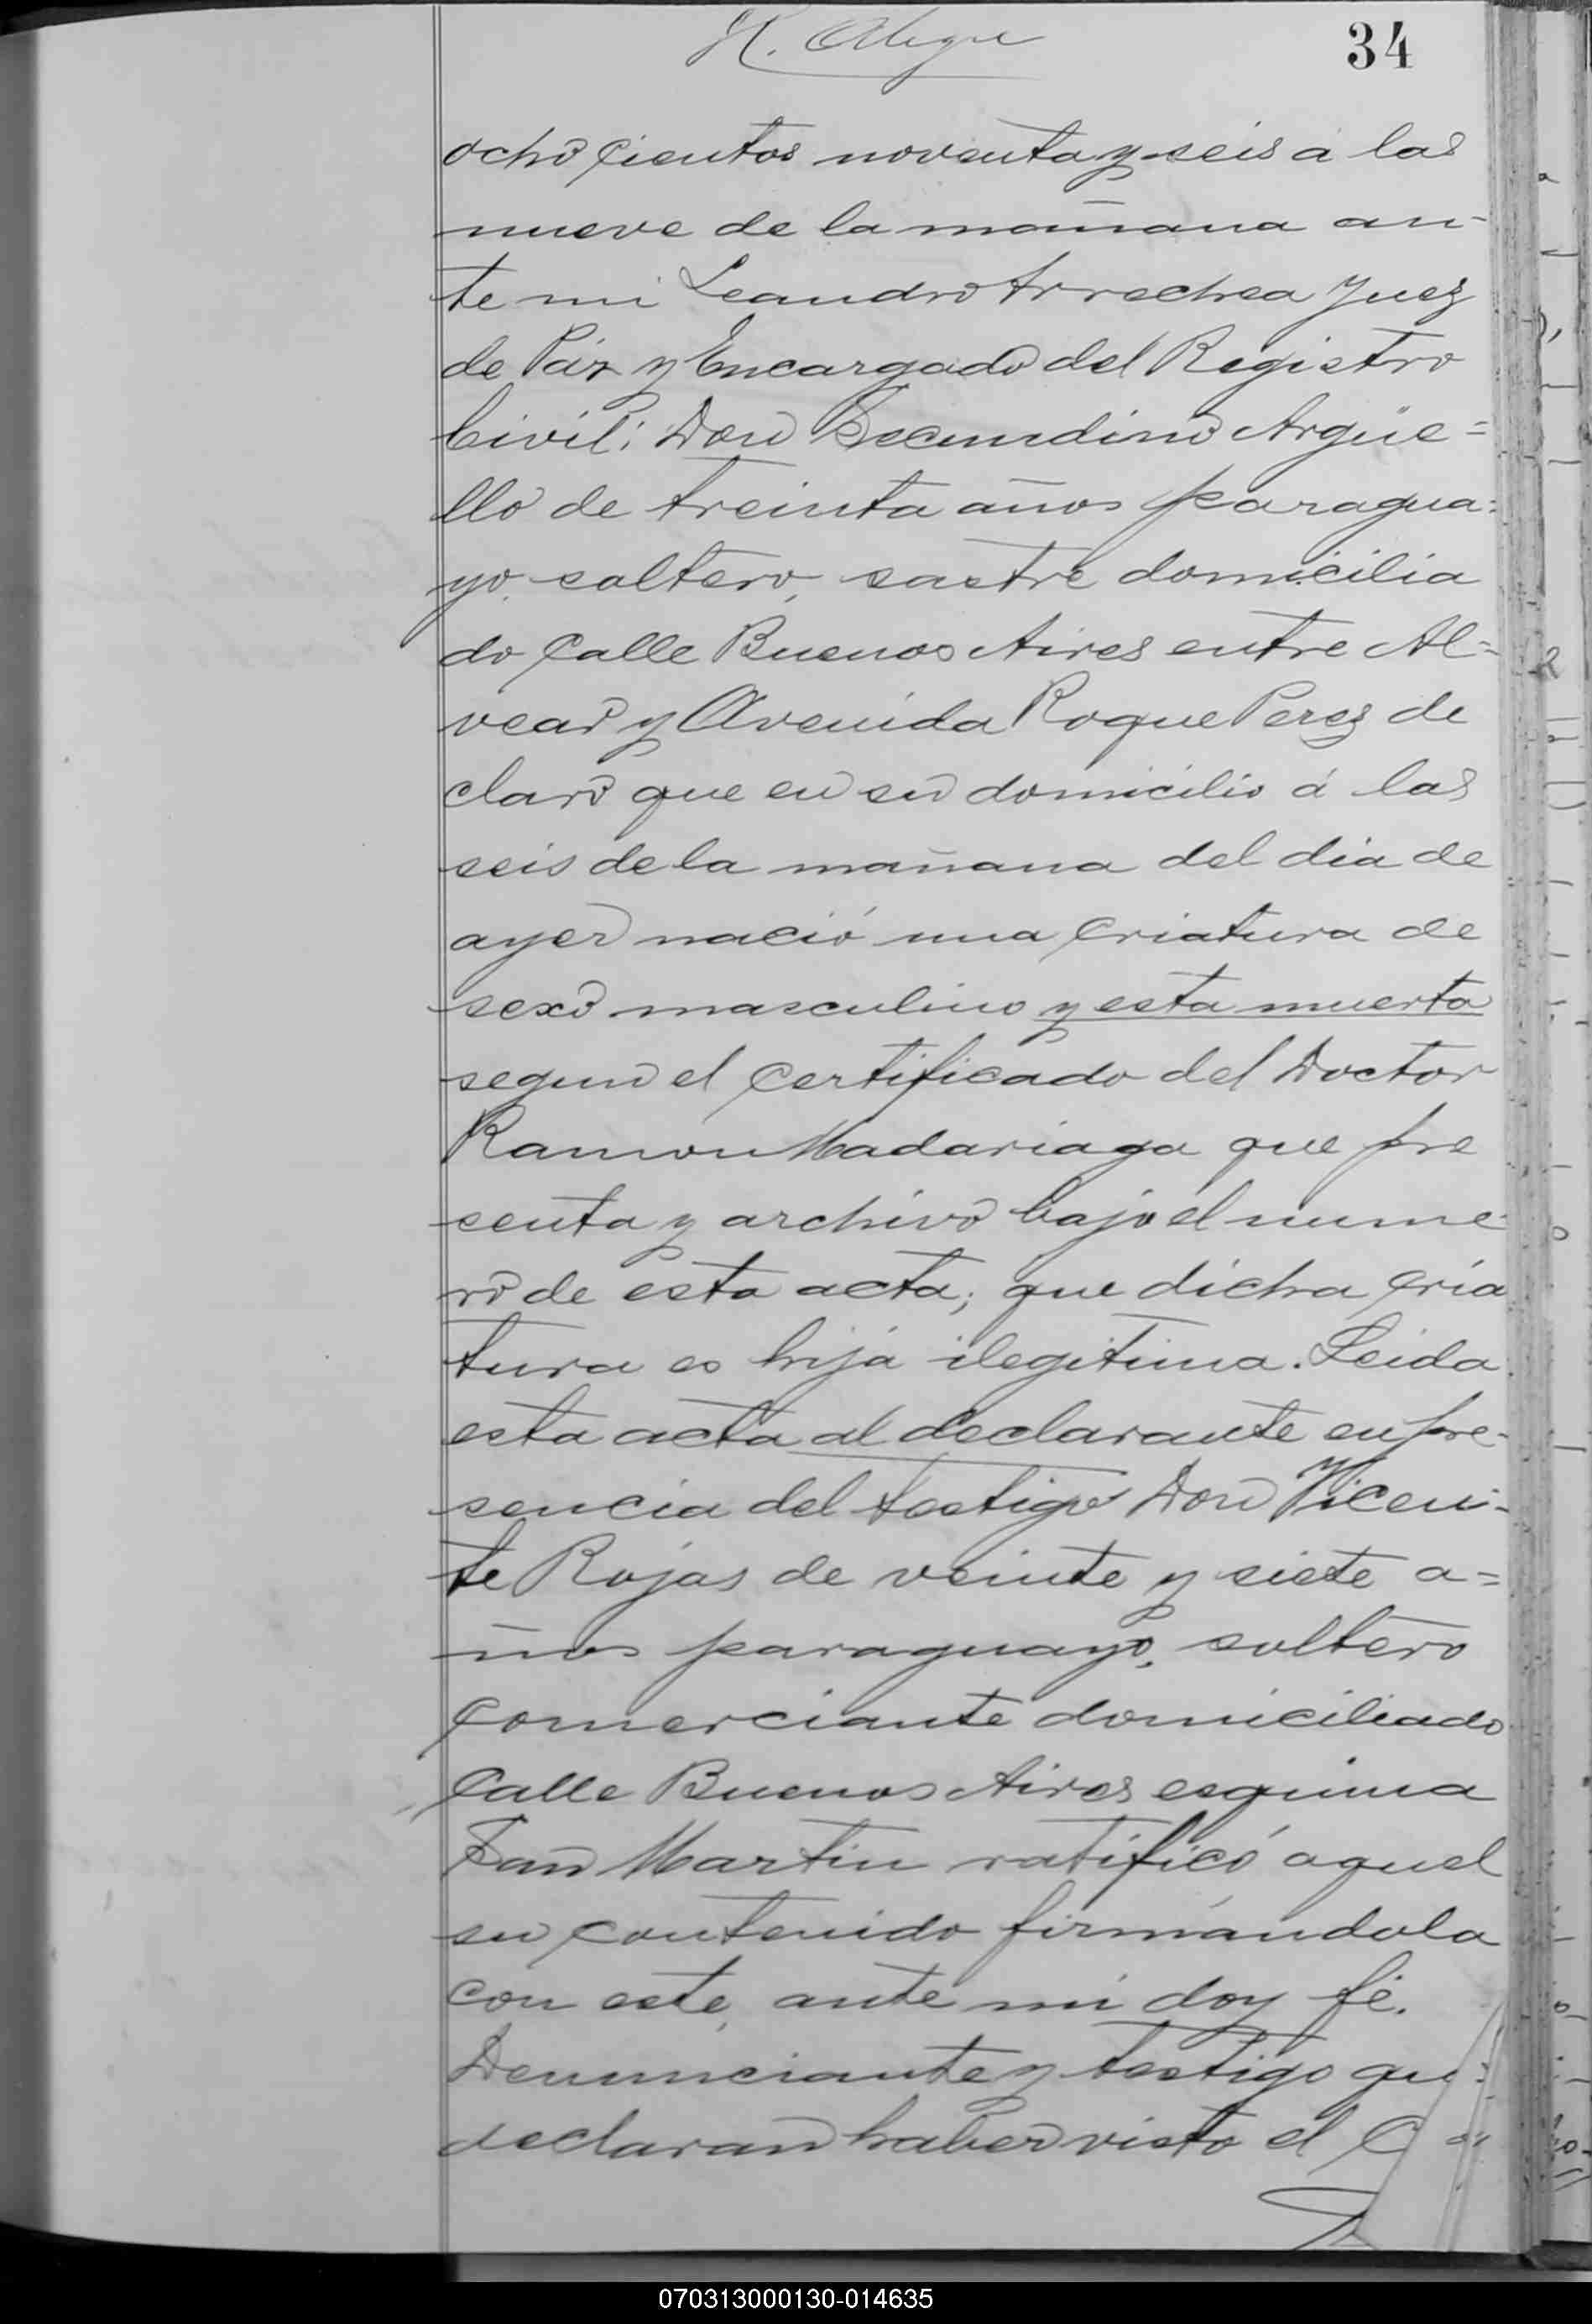 H. Alegre
34
ochocientos noventa y seis á las
nueve de la mañana an-
te mi Leandro Arrechea Juez
de Páz y Encargado del Registro
Civil: Don Secundino Argüe=
llo de treinta años paragua=
yo, soltero, sastre domicilia
do calle Buenos Aires entre Al=
vear y Avenida Roque Perez de
claró que en su domicilio á las
seis de la mañana del dia de
ayer nació una criatura de
sexo masculino y esta muerta
segun el certificado del Doctor
Ramon Madariaga que pre
senta y archivo bajo el nume-
ro de esta acta; que dicha cria
tura es hija ilegitima. Leida
esta acta al declarante en pre-
sencia del testigo Don Vicen-
te Rojas de veinte y siete a=
ños paraguayo, soltero
comerciante domiciliado
calle Buenos Aires esquina
San Martin ratificó aquel
su contenido firmándola
con este, ante mi doy fé.
Denunciante y testigo que
declaran haber visto el
070313000130-014635